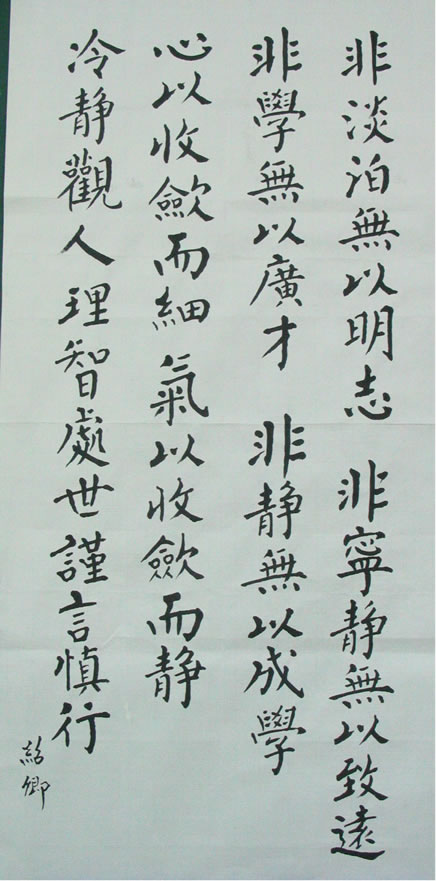 非淡泊無以明志 非寧靜無以致遠
非學無以廣才 非靜無以成學
心以收歛而細 氣以收歛而静
冷静觀人理智處世謹言慎行
紹卿